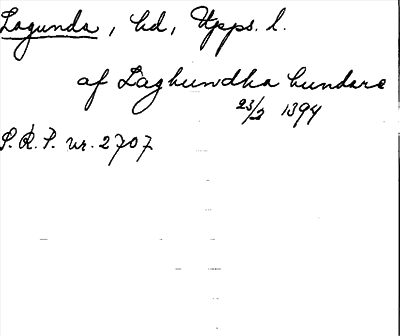 Lagunda, hd, Upps. l.
af Laghundha hundare
23/2 1394
S. R. P. nr. 2707